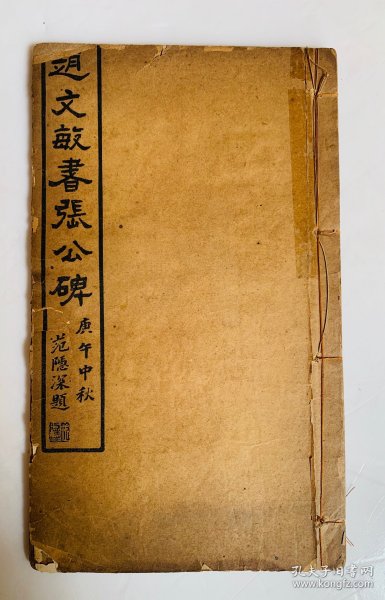 趙文敏書張公碑
庚午中秋
范隱深題
孔夫子旧书网